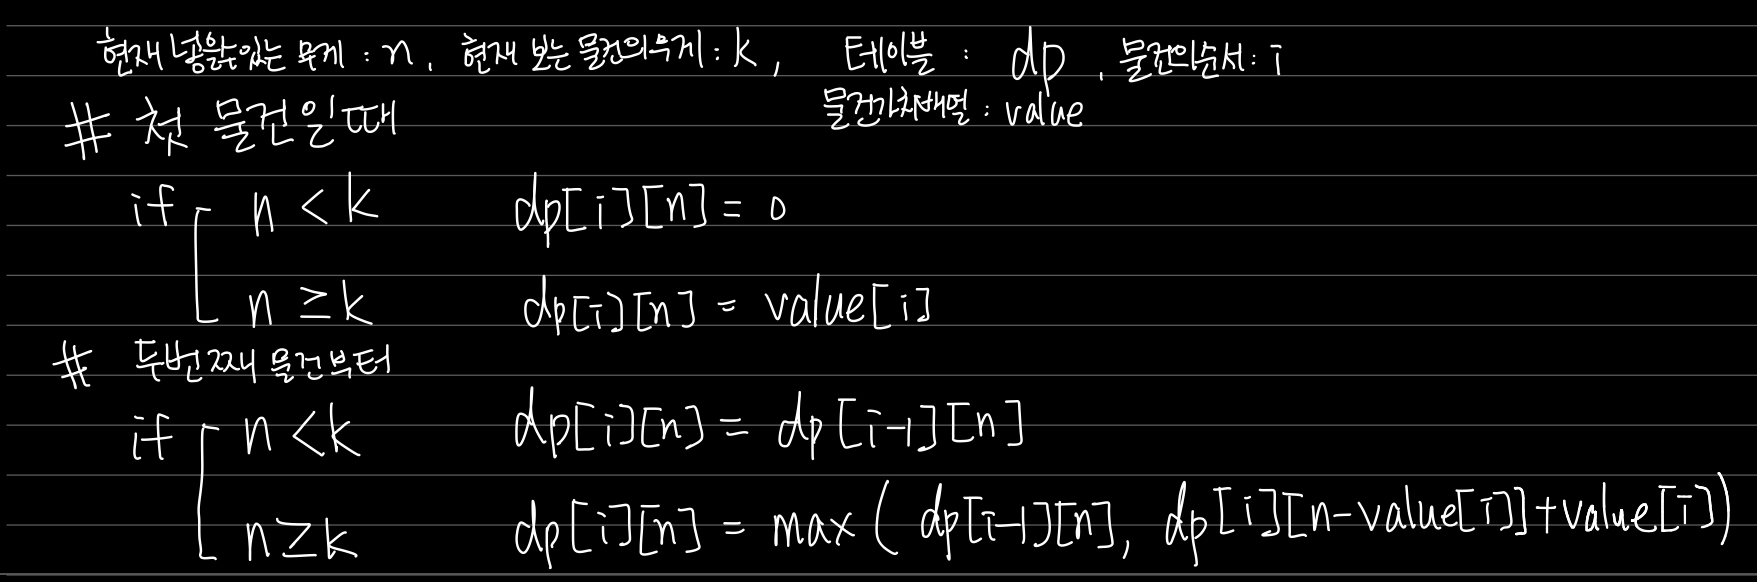 현재 넣을수있는 무게 : n, 현재 보는 물건의무게 : k, 테이블 : dp, 물건의순서 : i
물건가치배열 : value
# 첫 물건일때
if n < k dp[i][n] = 0
n ≥ k dp[i][n] = value[i]
# 두번째 물건부터
if n < k dp[i][n] = dp[i-1][n]
n ≥ k dp[i][n] = max( dp[i-1][n], dp[i][n-value[i]]+value[i])